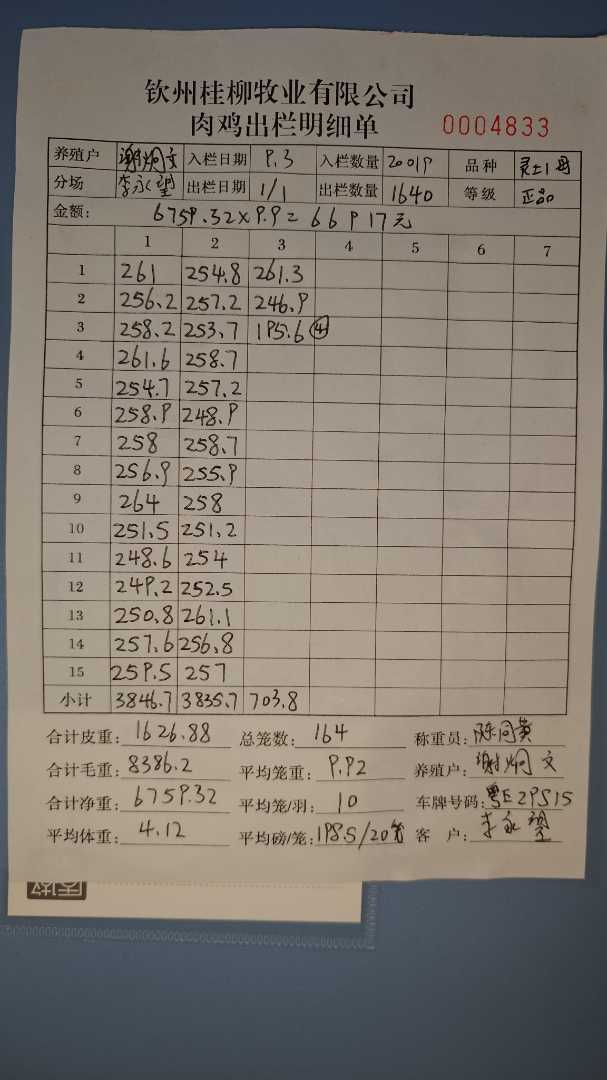 钦州桂柳牧业有限公司
肉鸡出栏明细单 0004833
养殖户 谢炯文 入栏日期 9.3 入栏数量 20019 品种 灵土1母
分场 李永望 出栏日期 1/1 出栏数量 1640 等级 正品
金额: 6759.32×9.9=66917元
1 2 3 4 5 6 7
1 261 254.8 261.3
2 256.2 257.2 246.9
3 258.2 253.7 195.6 ④
4 261.6 258.7
5 254.7 257.2
6 258.9 248.9
7 258 258.7
8 256.9 255.9
9 264 258
10 251.5 251.2
11 248.6 254
12 249.2 252.5
13 250.8 261.1
14 257.6 256.8
15 259.5 257
小计 3846.7 3835.7 703.8
合计皮重: 1626.88 总笼数: 164 称重员: 陈同黄
合计毛重: 8386.2 平均笼重: 9.92 养殖户: 谢炯文
合计净重: 6759.32 平均笼/羽: 10 车牌号码: 粤E29S15
平均体重: 4.12 平均磅/笼: 198.5/20笼 客 户: 李永望